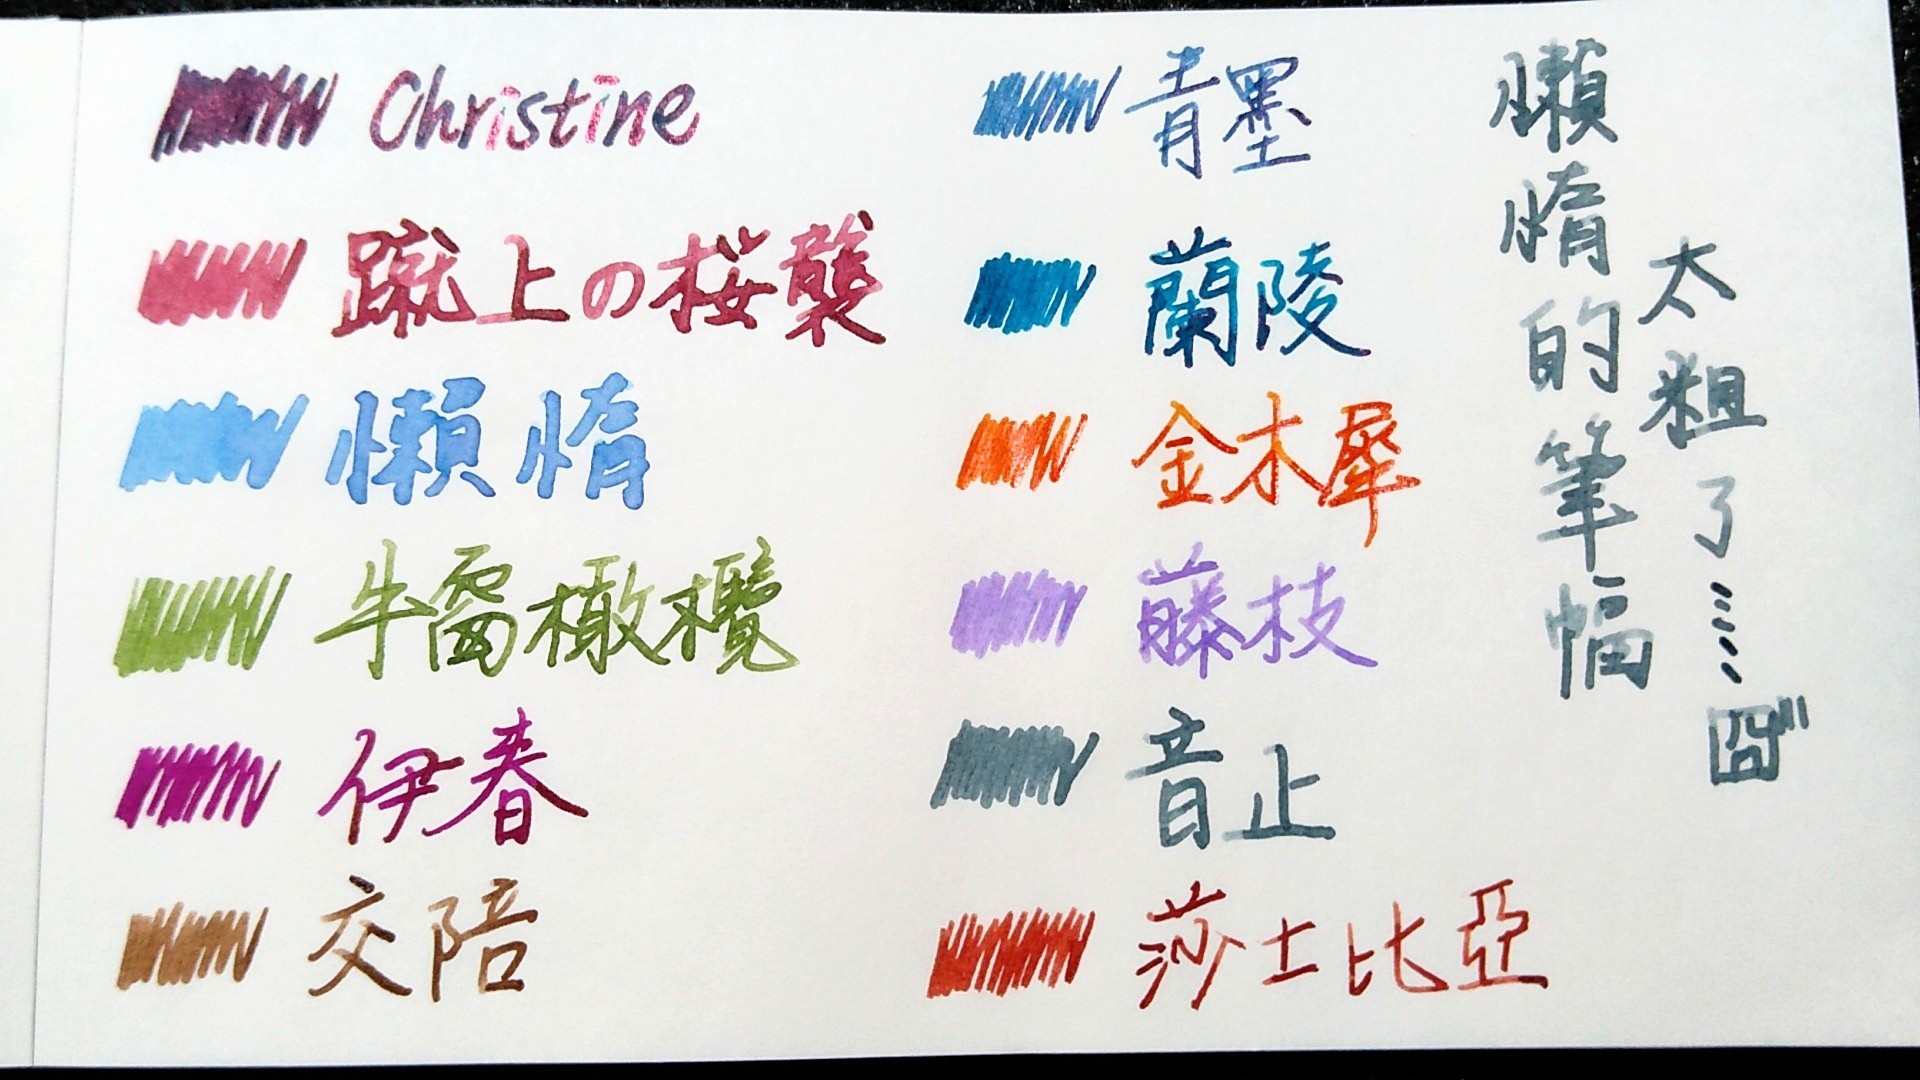 Christine
蹴上の桜襲
懶惰
牛雷橄欖
伊春
交陪
青墨
蘭陵
金木犀
藤枝
音止
莎士比亞
懶惰的筆幅
太粗了……囧"